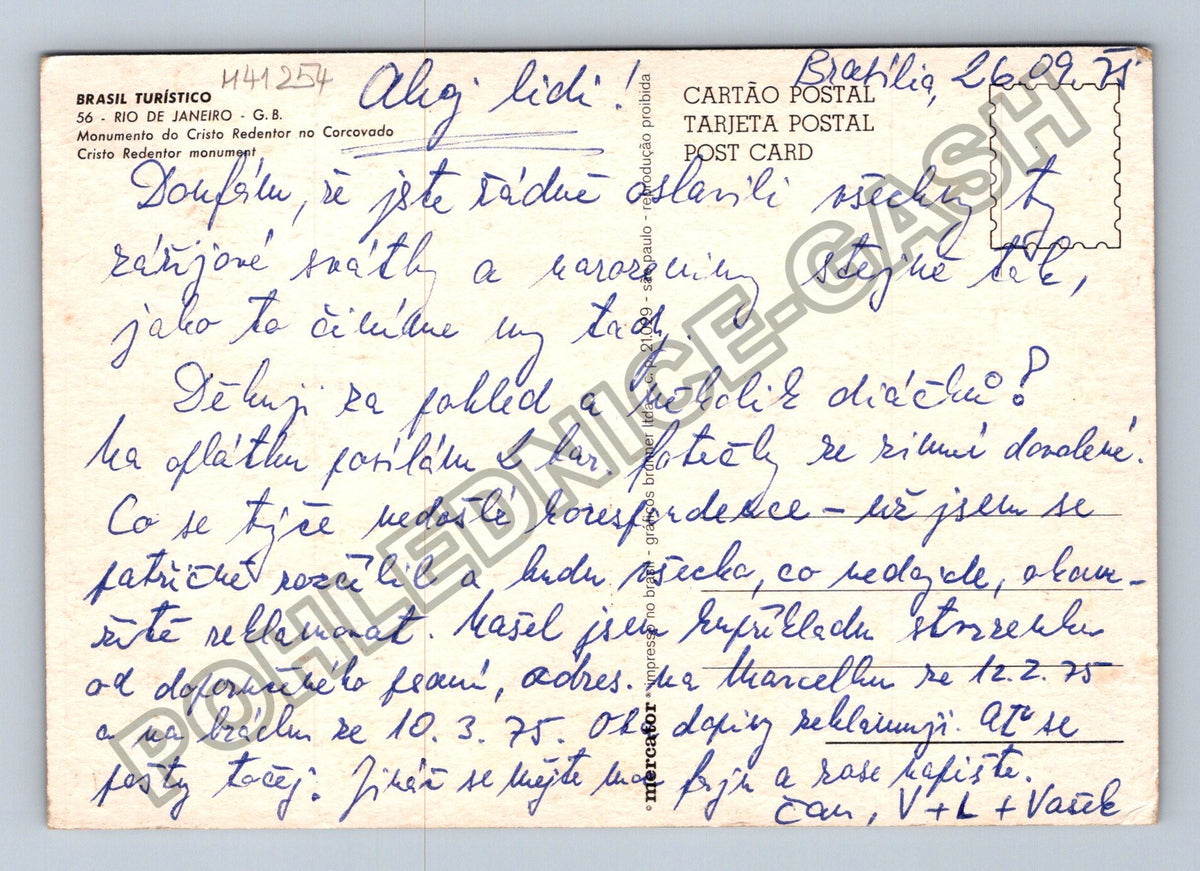 M41254
BRASIL TURÍSTICO
56 - RIO DE JANEIRO - G.B.
Monumento do Cristo Redentor no Corcovado
Cristo Redentor monument
CARTÃO POSTAL
TARJETA POSTAL
POST CARD
Brasília, 26.09.75
Ahoj lidi!
Doufám, že jste řádně oslavili všechny ty
zářijové svátky a narozeniny stejně tak,
jako to činíme my tady.
Děkuji za pohled a několik diáčků!
Na oplátku posílám 2 bar. fotečky ze zimní dovolené.
Co se týče nedošlé korespondence – už jsem se
patřičně rozčílil a budu všecko, co nedojde, okam-
žitě reklamovat. Našel jsem kupříkladu stvrzenku
od doporučného psaní, adres. na Marcelku ze 12.2.75
a na bráchu ze 10.3.75. Oba dopisy reklamuji. Ať se
pošty točej! Jináč se mějte moc fajn a zase napište.
Čau, V + L + Vašek
mercator impresso no brasil - gráficos brunner ltda - c. p. 21.029 - são paulo - reprodução proibida
POHLEDNICE-GASH